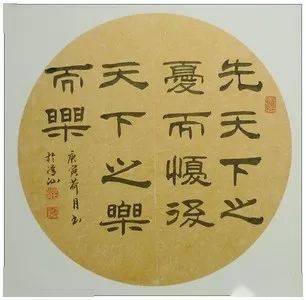 先天下之
憂而懮後
天下之樂
而樂
庚寅荷月书